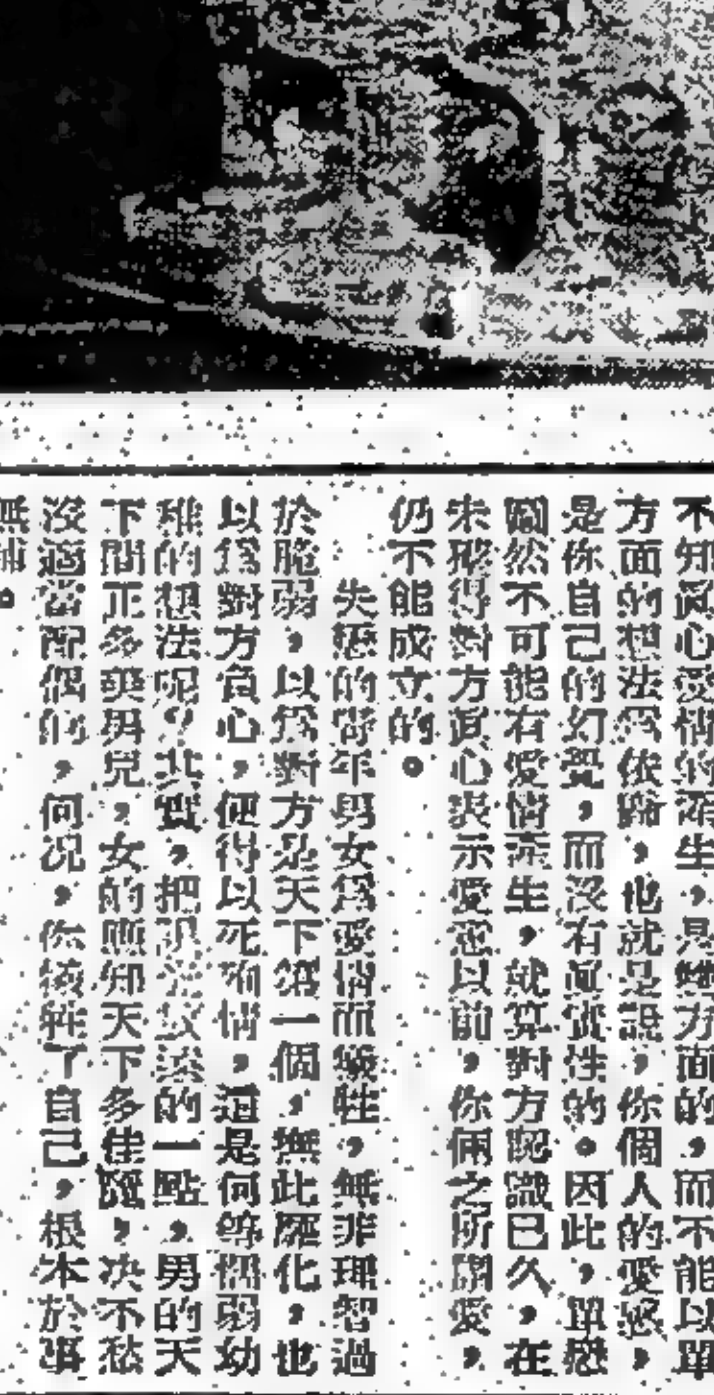 不知眞心愛情的產生，是雙方面的，而不能以單
方面的想法爲依歸，也就是說，你個人的愛慾，
是你自己的幻覺，而沒有眞實性的。因此，單戀
固然不可能有愛情產生，就算對方認識已久，在
未獲得對方眞心表示愛意以前，你倆之所謂愛，
仍不能成立的。
失戀的靑年男女爲愛情而犧牲，無非理智過
於脆弱，以爲對方是天下第一個，無此匹化，也
以爲對方負心，便得以死殉情，這是何等懦弱幼
稚的想法呢？其實，把眼光放遠的一點，男的天
下間正多美男兒，女的應知天下多佳麗，决不愁
沒適當配偶的，何况，你犧牲了自己，根本於事
無補。